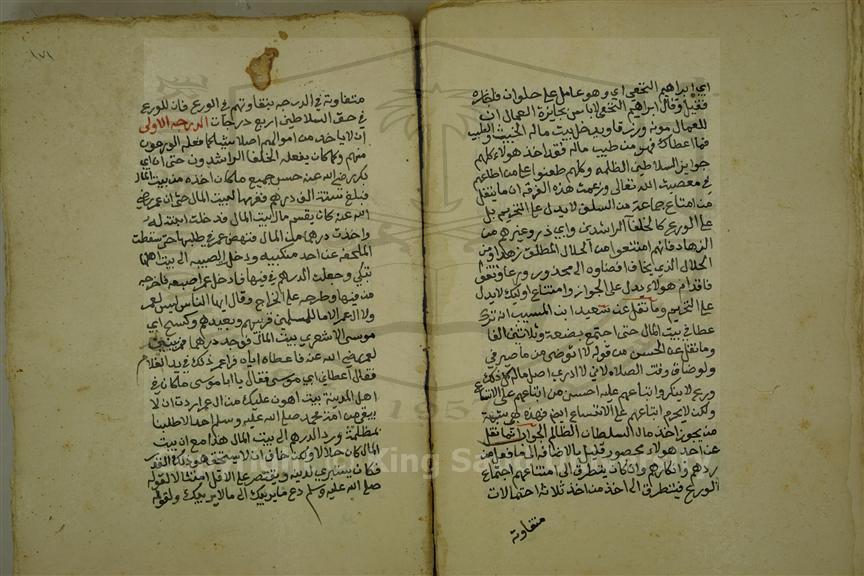 اي ابراهيم النخعي اي وهو عامل على حلوان فاجازه
فقبل وقال ابراهيم النخعي لا باس بجايزة العمال ان
للعمال مونة ورزقا ويدخل بيت ماله الخبيث والطيب
فما اعطاك فهو من طيب ماله فقد اخذ هولاء كلهم
جوايز السلاطين الظلمه وكلهم طعنوا على من اطاعهم
في معصية الله تعالى وزعمت هذه الفرقه ان ما ينقل
من امتناع جماعة من السلف لا يدل على التحريم بل
على الورع كالخلفاء الراشدين وابي ذر وغيرهم من
الزهاد فانهم امتنعوا من الحلال المطلق زهدا ومن
الحلال الذي يخاف افضاوه الى محذور ورعا وتقوى
فاقدام هولاء يدل على الجواز وامتناع اوليك لا يدل
على التحريم وما نقل عن سعيد ابن المسيب انه ترك
عطاه في بيت المال حتى اجتمع بضعة وثلاثين الفا
وما نقل عن الحسن من قوله لا اتوضى من ما صيرفي
ولو ضاق وقت الصلاه لاني لا ادري اصل ماله كل ذلك
ورع لا ينكر واتباعهم عليه احسن من اتباعهم على الاتساع
ولكن لا يحرم اتباعهم على الاتساع ايضا فهذه هي شبهة
من يجوز اخذ مال السلطان الظالم الجواب ان ما نقل
عن اخذ هولاء محصور قليل بالاضافة الى ما نقل من
ردهم وانكارهم وان كان يتطرق الى امتناعهم احتمال
الورع فيتطرق الى اخذ من اخذ ثلاث احتمالات
متفاوتة
١٧١
متفاوتة في الدرجه بتفاوتهم في الورع فان للورع
في حق السلاطين اربع درجات الدرجه الاولى
ان لا ياخذ من اموالهم اصلا شيئا كما فعله الورعون
منهم وكما كان يفعله الخلفا الراشدون حتى ان ابي
بكر رضي الله عنه حسن جميع ما كان اخذه من بيت المال
فبلغ ستة الف درهم فغرمها لبيت المال حتى ان عمر رضي
الله عنه كان يقسم مال بيت المال فدخلت ابنته له
واخذت درهما من المال فنهض عمر في طلبها حتى سقطت
الملحفة عن احد منكبيه ودخل الصبيه الى بيت اهلها
تبكي وجعلت الدرهم في فيها فادخل عمر اصبعه فاخرجه
من فيها وطرحه على الخراج وقال ايها الناس ليس لعمر
ولا ال عمر الا ما للمسلمين قريبهم وبعيدهم وكسح ابي
موسى الاشعري بيت المال فوجد درهما فمر بني
لعمر رضي الله عنه فاعطاه اياه فراى عمر ذلك في يد الغلام
فقال اعطاني ابي موسى فقال يا ابا موسى ما كان في
اهل المدينة بيت اهون عليك من ال عمر اردت ان لا
يبقى من امة محمد صلى الله عليه وسلم احد الا طلبنا
بمظلمة ورد الدرهم الى بيت المال هذا مع ان بيت
المال كان حلالا ولكن خاف ان لا يستحق هو ذلك القدر
فكان يستبري لدينه ويقتصر على الاقل امتثالا لقوله
صلى الله عليه وسلم دع ما يريبك الى ما لا يريبك ولقوله